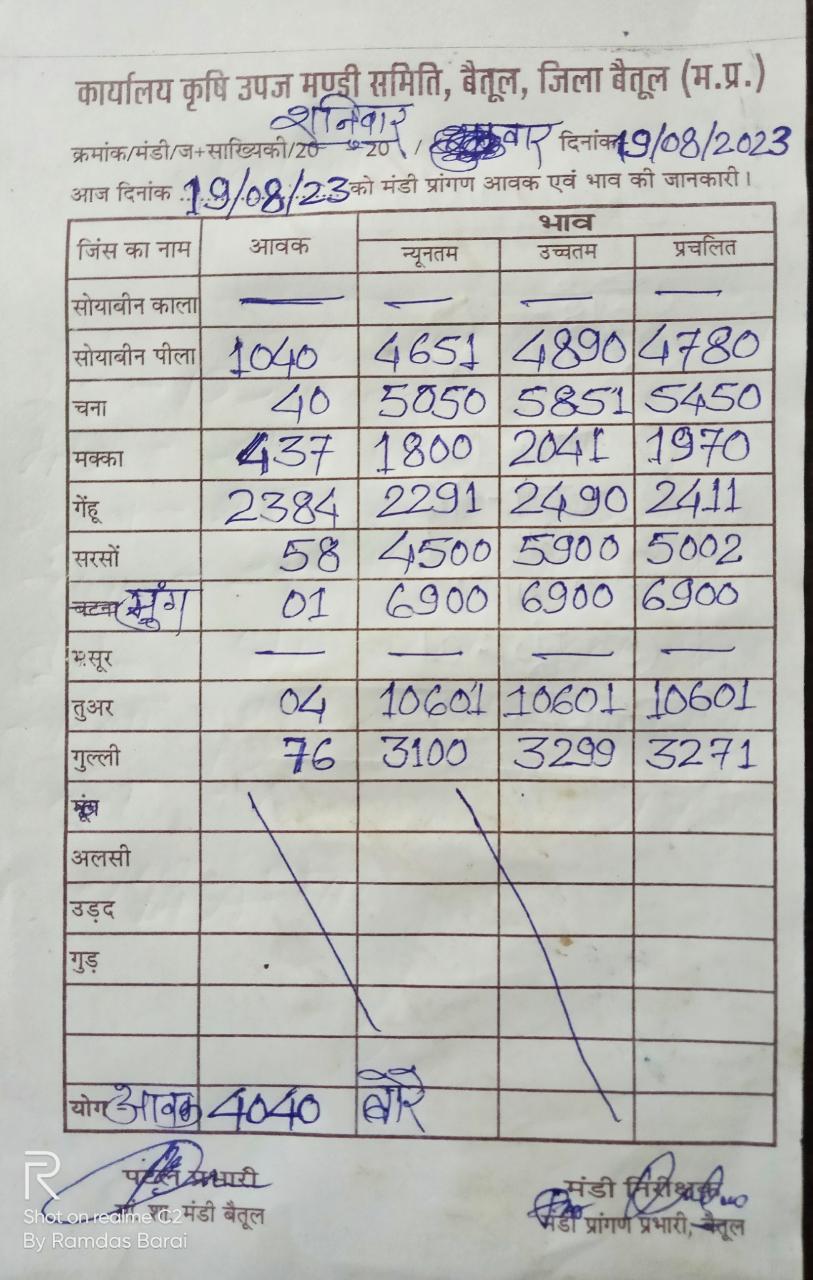 कार्यालय कृषि उपज मण्डी समिति, बैतूल, जिला बैतूल (म.प्र.)
शनिवार
क्रमांक/मंडी/ज+सांख्यिकी/20 20 / वार दिनांक 19/08/2023
आज दिनांक 19/08/23 को मंडी प्रांगण आवक एवं भाव की जानकारी।
जिंस का नाम आवक भाव
न्यूनतम उच्चतम प्रचलित
सोयाबीन काला — — — —
सोयाबीन पीला 1040 4651 4890 4780
चना 40 5050 5851 5450
मक्का 437 1800 2041 1970
गेंहू 2384 2291 2490 2411
सरसों 58 4500 5900 5002
बटना मुंग 01 6900 6900 6900
मसूर — — — —
तुअर 04 10601 10601 10601
गुल्ली 76 3100 3299 3271
अलसी
उड़द
गुड़
योग आवक 4040 बोरे
प्रभारी मंडी निरीक्षक
मंडी बैतूल मंडी प्रांगण प्रभारी, बैतूल
R
Shot on realme C2
By Ramdas Barai